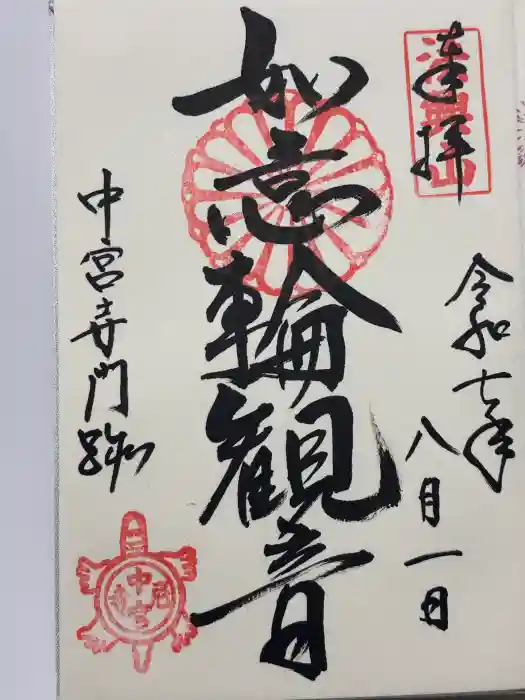 奉拝
法興山
令和七年
八月一日
如意輪観音
中宮寺門跡
中宮寺